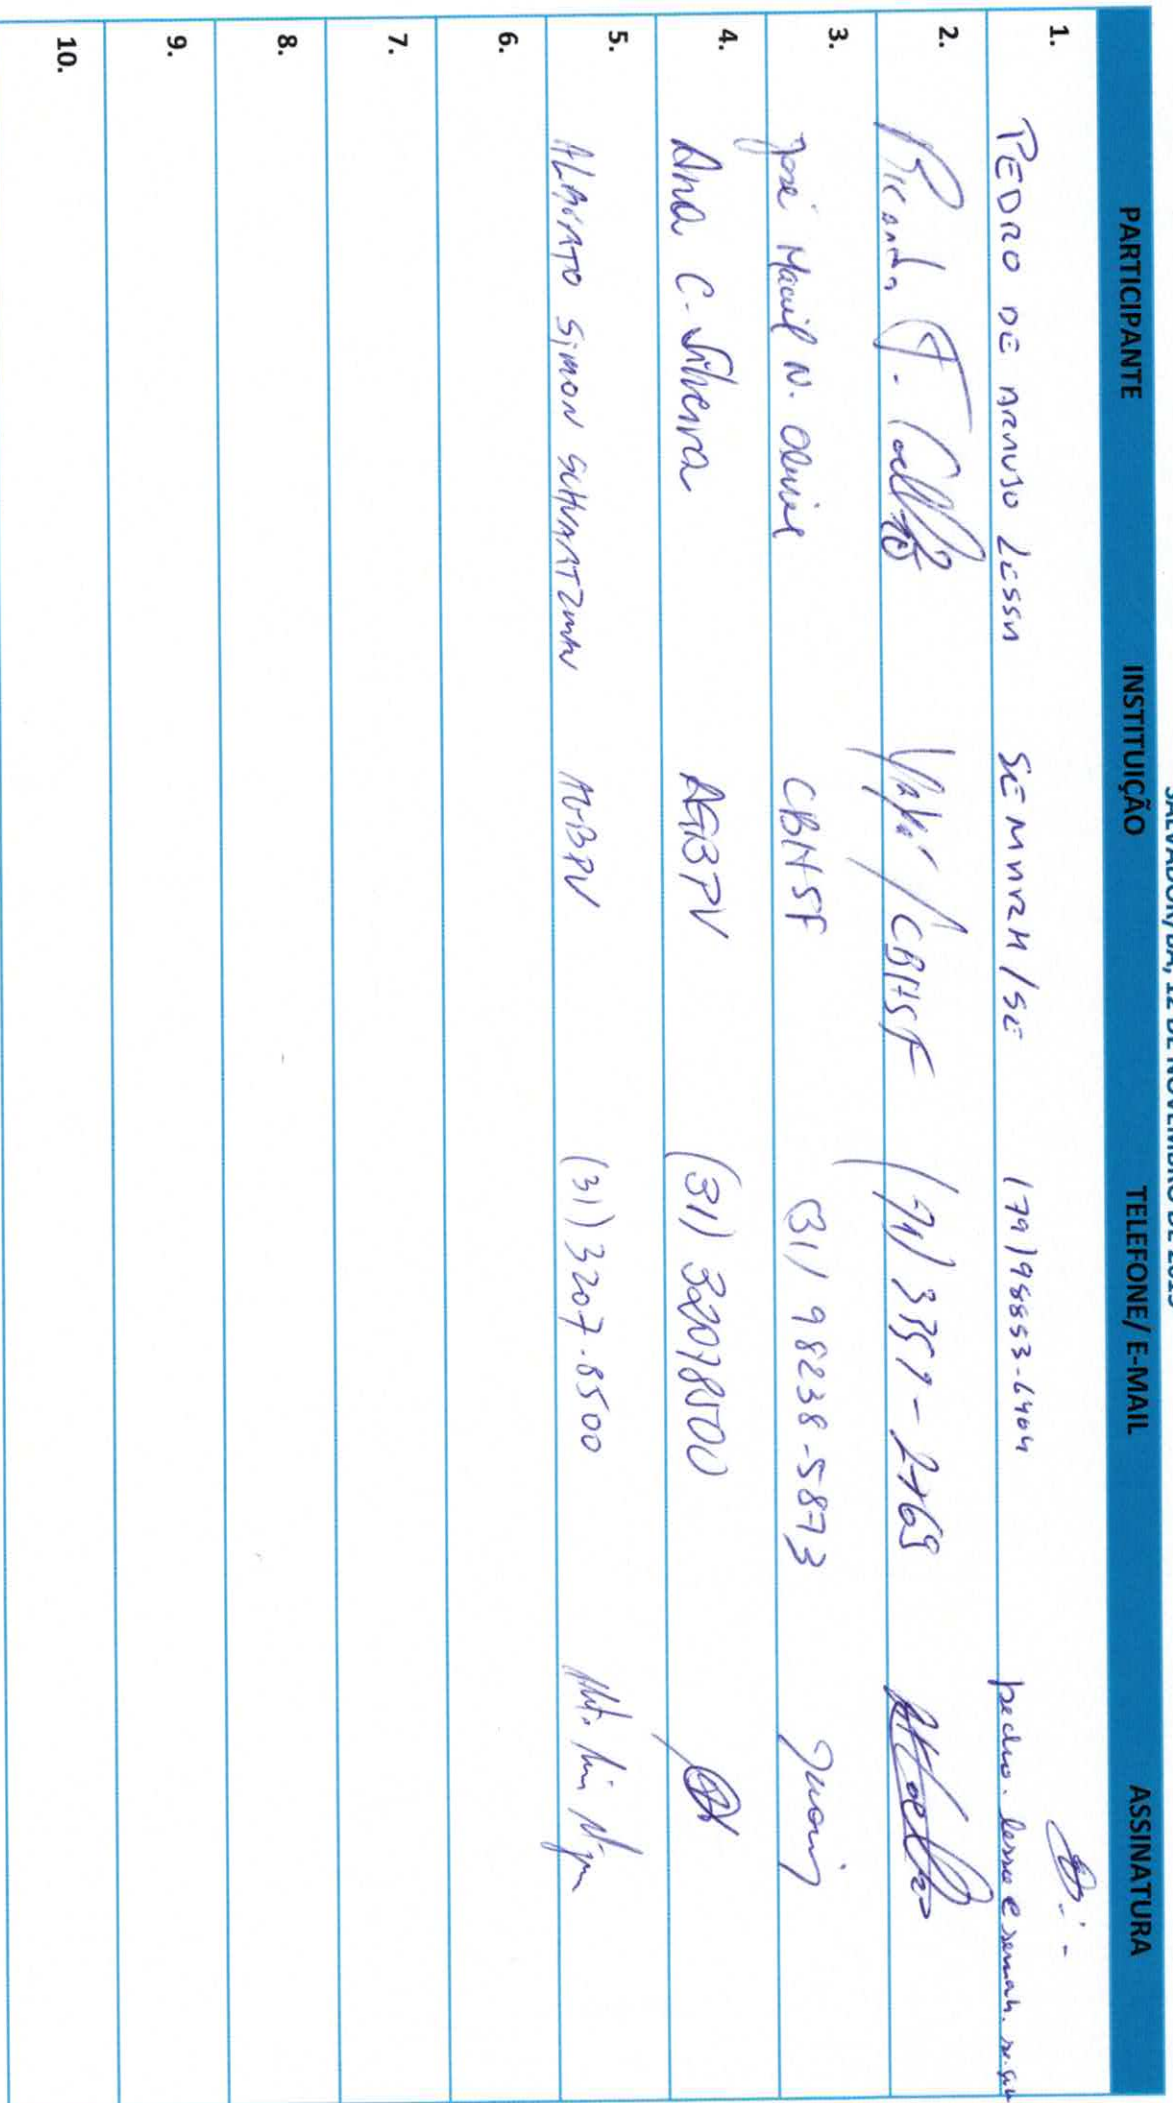 SALVADOR/BA, 12 DE NOVEMBRO DE 2019
PARTICIPANTE INSTITUIÇÃO TELEFONE/ E-MAIL ASSINATURA
1. PEDRO DE ARAUJO LESSA SEMARH/SE (79)98853-6404 pedro.lessa@semarh.se.gov
2. Ricardo A. Coelho /CBHSF (71) 3351-2769
3. José Maciel N. Oliveira CBHSF (31) 98238-5873
4. Ana C. Silveira AGBPV (31) 32078500
5. ALBERTO SIMON SCHVARTZMAN AGBPV (31) 3207-8500
6.
7.
8.
9.
10.